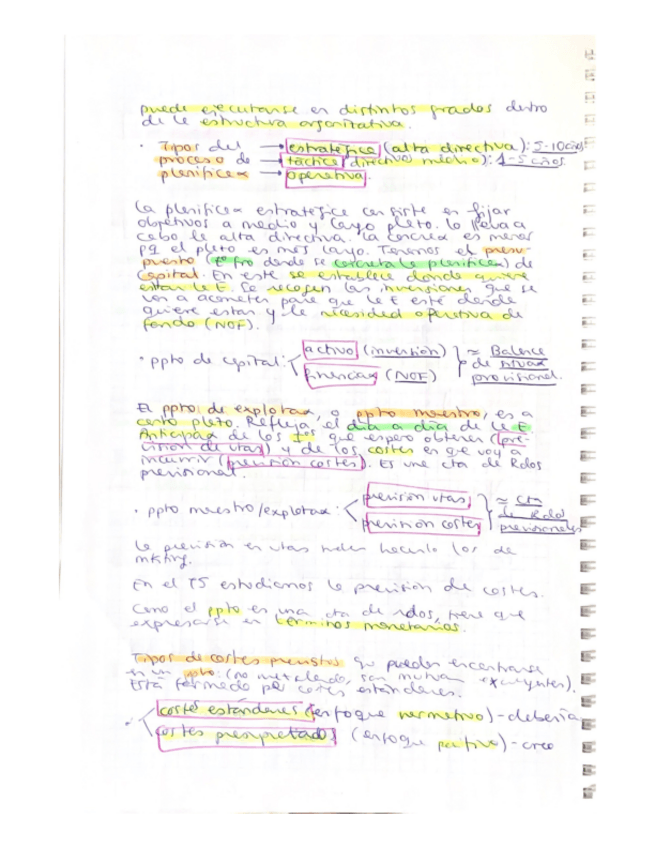 puede ejecutarse en distintos grados dentro
de la estructura organizativa.
· Tipos del → estratégica (alta directiva): 5-10 años
proceso de → táctica (directivos medio): 1-5 años
planificaɔ → operativa.
La planificaɔ estratégica consiste en fijar
objetivos a medio y largo plazo. Lo lleva a
cabo la alta directiva. La concreɔ es menor
pq el plazo es más largo. Tenemos el presu-
puesto (dfro donde se concreta la planificaɔ) de
Capital. En este se establece donde quiere
estar la E. Se recogen las inversiones que se
van a acometer para que la E esté donde
quiere estar y la necesidad operativa de
fondo (NOF).
· ppto de capital: activo (inversión) ≈ Balance
financiaɔ (NOF) de situaɔ
provisional.
El ppto: de explotaɔ, o ppto maestro, es a
corto plazo. Refleja el día a día de la E
Anticipaɔ de los Iᵒˢ que espero obtener (pre-
visión de vtas) y de los costes en que voy a
incurrir (previsión costes). Es una cta de Rdos
previsional.
· ppto maestro/explotaɔ: previsión vtas ≈ cta
previsión costes de Rdos
previsionales
La previsión en vtas suelen hacerlo los de
mkting.
En el T5 estudiamos la previsión de costes.
Como el ppto es una cta de rdos, tiene que
expresarse en términos monetarios.
Tipos de costes previstos que pueden encontrarse
en un ppto: (no mezclando, son mutuam excluyentes).
Está formado por costes estándares.
· costes estándares (enfoque normativo) - debería
costes presupuestados (enfoque positivo) - creo